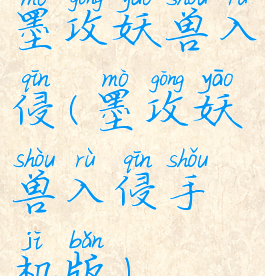 mò gōng yāo shòu rù
墨攻妖兽入
qīn mò gōng yāo
侵(墨攻妖
shòu rù qīn shǒu
兽入侵手
jī bǎn
机版)